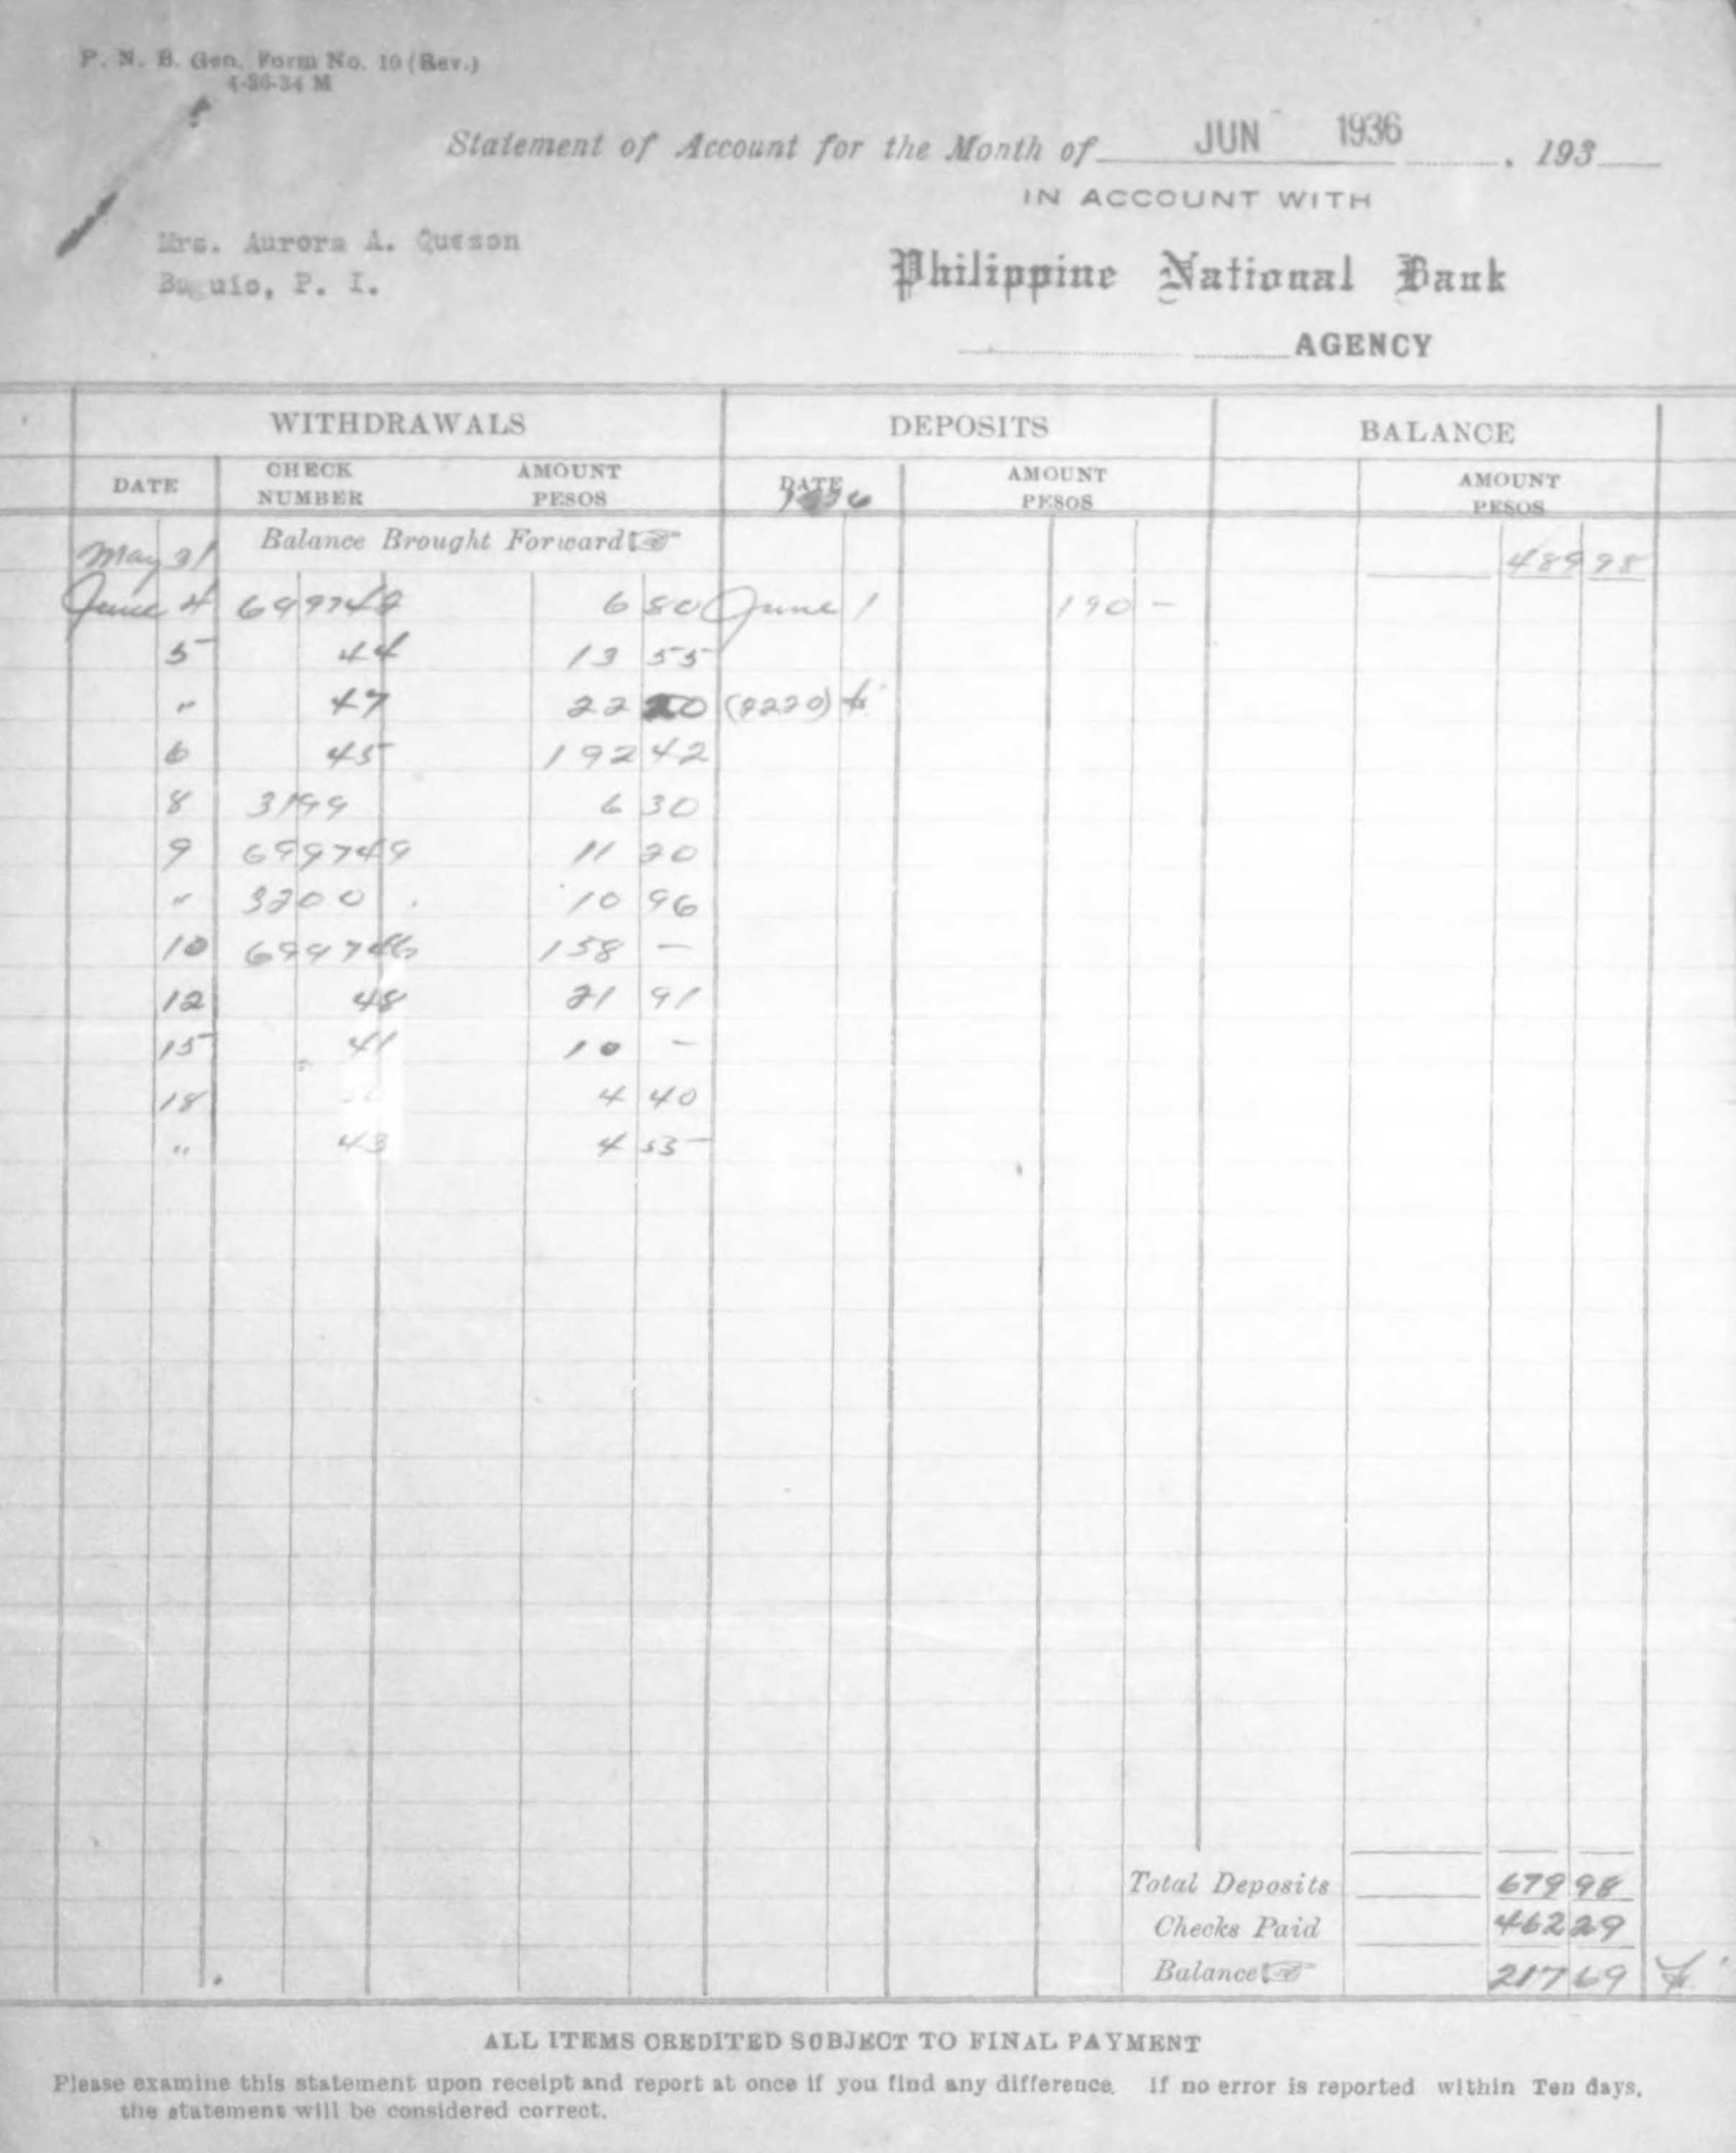 P. N. B. Gen. Form No. 10 (Rev.)
4-26-34 M
Statement of Account for the Month of JUN 1936 , 193
IN ACCOUNT WITH
Mrs. Aurora A. Quezon
Baguio, P. I.
Philippine National Bank
AGENCY
WITHDRAWALS DEPOSITS BALANCE
DATE CHECK NUMBER AMOUNT PESOS DATE 1936 AMOUNT PESOS AMOUNT PESOS
May 31 Balance Brought Forward 489 98
June 4 699742 6 80 June 1 190 -
5 44 13 55
" 47 22 20 (2220)
6 45 192 42
8 3199 6 30
9 699749 11 20
" 3200 10 96
10 699746 158 -
12 48 21 91
15 41 10 -
18 50 4 40
" 43 4 55
Total Deposits 679 98
Checks Paid 462 29
Balance 217 69
ALL ITEMS CREDITED SUBJECT TO FINAL PAYMENT
Please examine this statement upon receipt and report at once if you find any difference. If no error is reported within Ten days,
the statement will be considered correct.